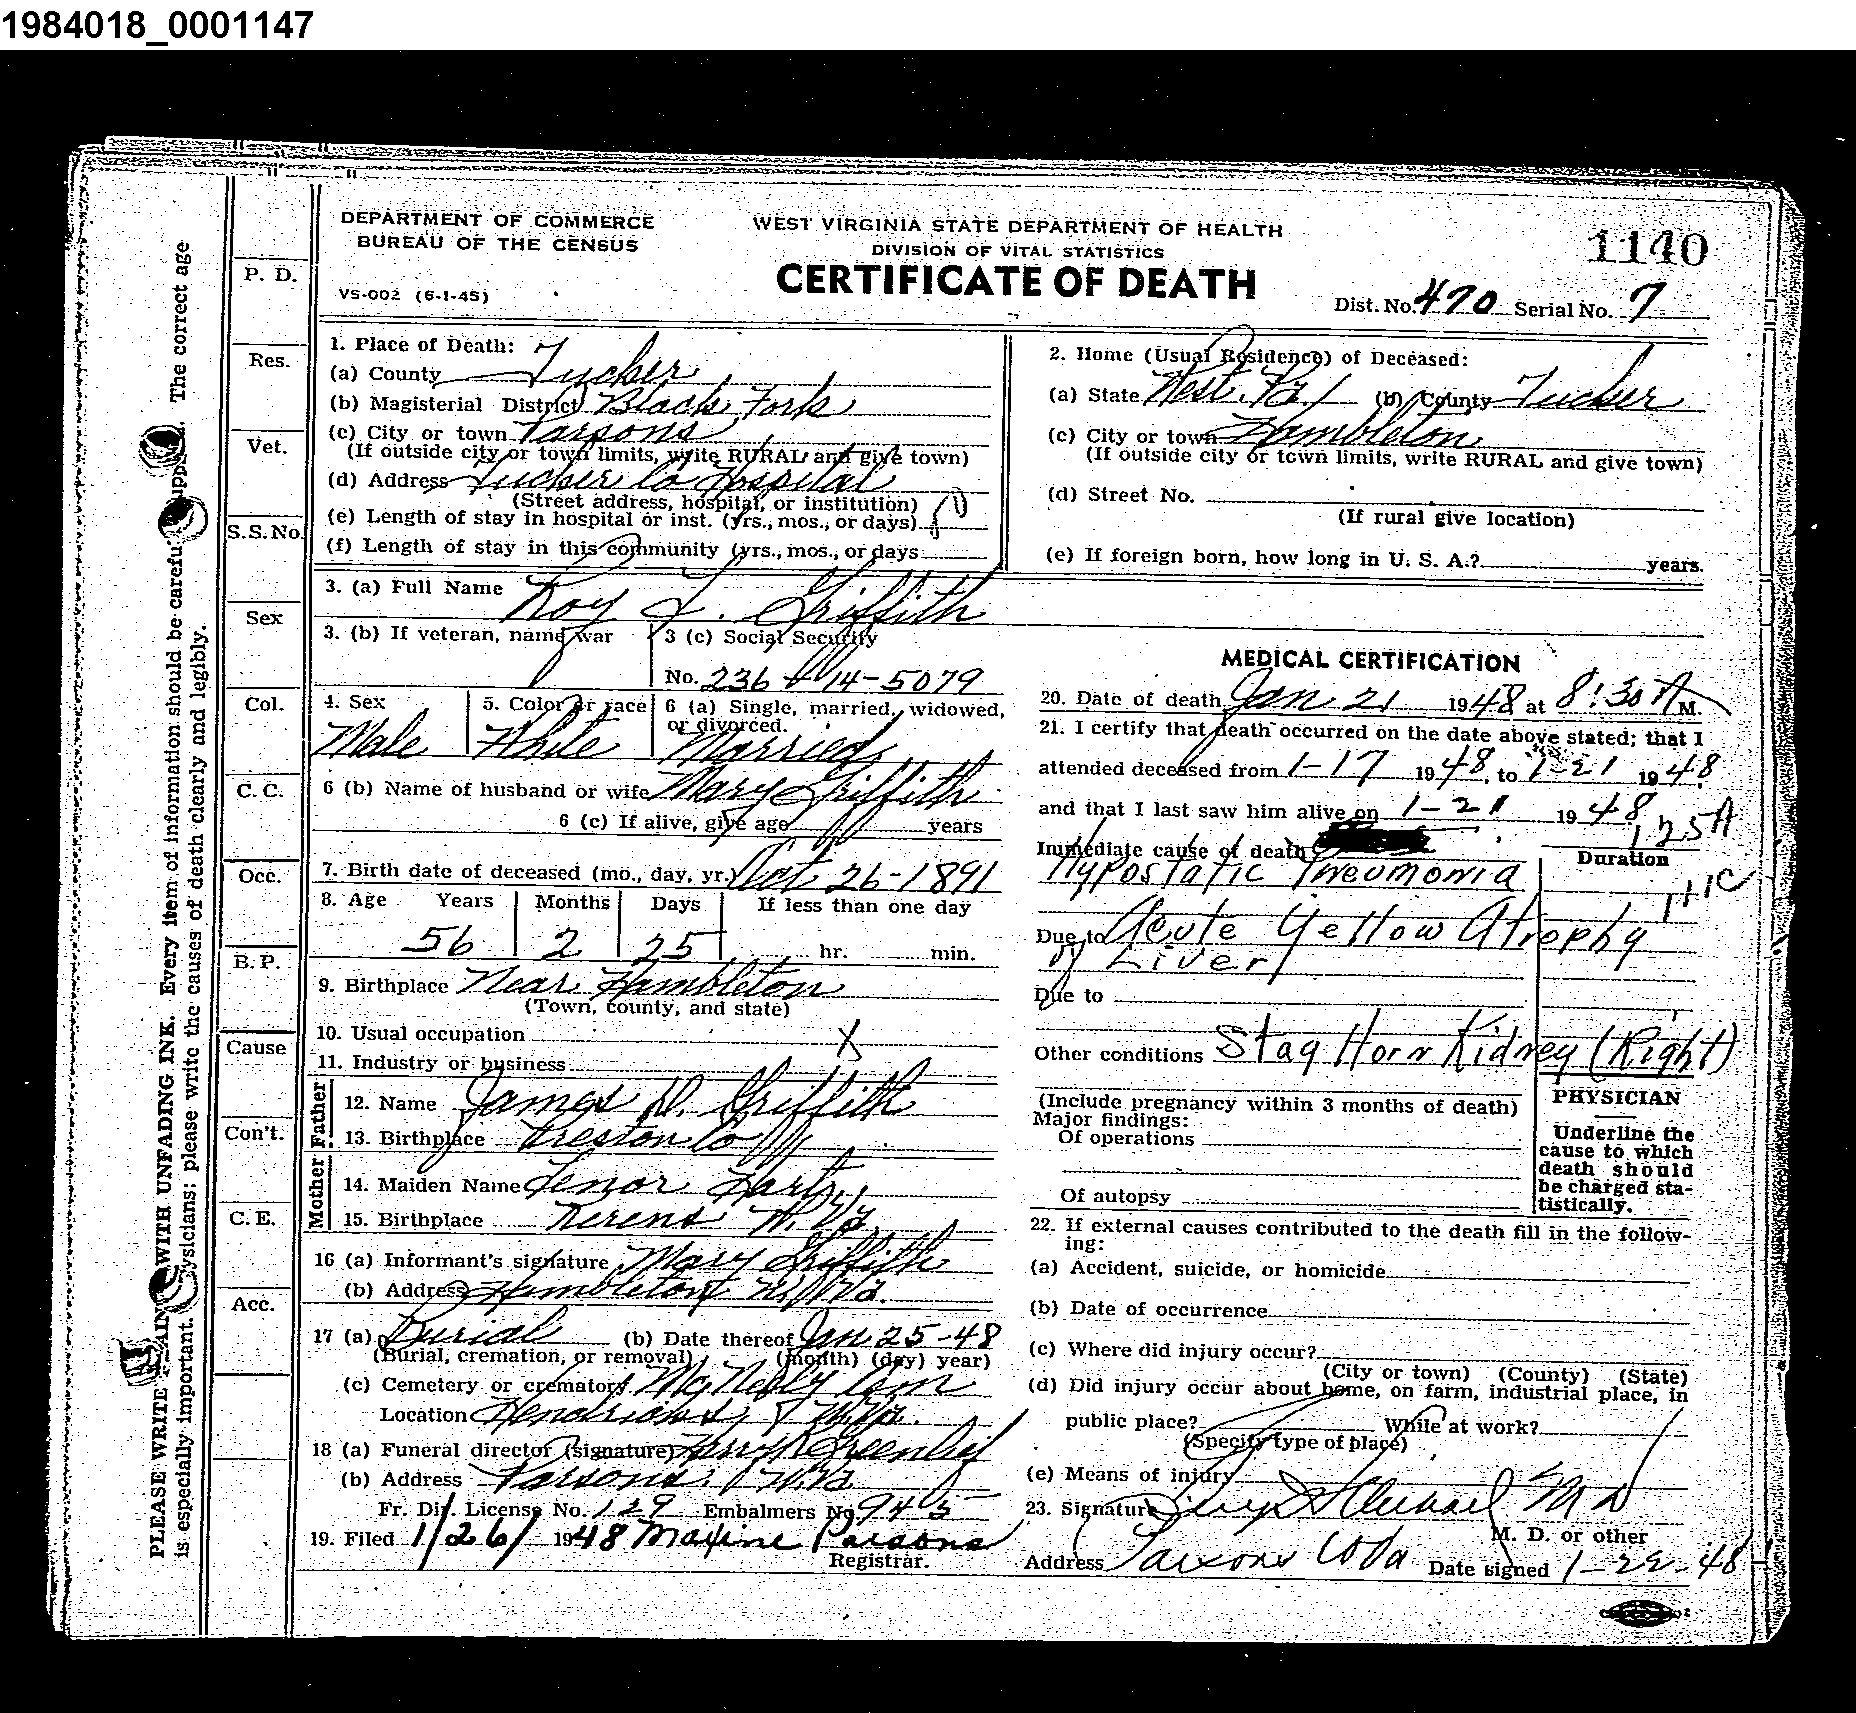 1984018_0001147
DEPARTMENT OF COMMERCE
BUREAU OF THE CENSUS
VS-002 (6-1-45)
WEST VIRGINIA STATE DEPARTMENT OF HEALTH
DIVISION OF VITAL STATISTICS
CERTIFICATE OF DEATH
1140
Dist. No. 470 Serial No. 7
PLEASE WRITE WITH UNFADING INK. Every item of information should be carefu The correct age
is especially important. ysicians; please write the causes of death clearly and legibly.
P. D.
Res.
Vet.
S.S.No.
Sex
Col.
C. C.
Occ.
B. P.
Cause
Con't.
C. E.
Acc.
1. Place of Death:
(a) County Tucker
(b) Magisterial District Black Fork
(c) City or town Parsons
(If outside city or town limits, write RURAL and give town)
(d) Address Tucker Co Hospital
(Street address, hospital, or institution)
(e) Length of stay in hospital or inst. (yrs., mos., or days)
(f) Length of stay in this community (yrs., mos., or days
2. Home (Usual Residence) of Deceased:
(a) State West. Va. (b) County Tucker
(c) City or town Hambleton
(If outside city or town limits, write RURAL and give town)
(d) Street No.
(If rural give location)
(e) If foreign born, how long in U. S. A.? years.
3. (a) Full Name Roy L. Griffith
3. (b) If veteran, name war
3 (c) Social Security
No. 236-14-5079
4. Sex Male
5. Color or race White
6 (a) Single, married, widowed,
or divorced. Married
6 (b) Name of husband or wife Mary Griffith
6 (c) If alive, give age years
7. Birth date of deceased (mo., day, yr.) Oct 26-1891
8. Age Years Months Days If less than one day
56 2 25 hr. min.
9. Birthplace Near Hambleton
(Town, county, and state)
10. Usual occupation X
11. Industry or business
Father
12. Name James D. Griffith
13. Birthplace Preston Co
Mother
14. Maiden Name Lenor
15. Birthplace Kerens W. Va.
16 (a) Informant's signature Mary Griffith
(b) Address Hambleton W. Va.
17 (a) Burial (b) Date thereof Jan 25-48
(Burial, cremation, or removal) (month) (day) year)
(c) Cemetery or crematory Cem
Location Hendricks, W. Va.
18 (a) Funeral director (signature) Greenlief
(b) Address Parsons, W. Va.
Fr. Dir. License No. 129 Embalmers No. 945
19. Filed 1/26/ 1948 Maxine Parsons
Registrar.
MEDICAL CERTIFICATION
20. Date of death Jan 21 1948 at 8:30 A M.
21. I certify that death occurred on the date above stated; that I
attended deceased from 1-17 1948, to 1-21 1948
and that I last saw him alive on 1-21 1948
Immediate cause of death
Duration
Hypostatic Pneumonia
Due to Acute Yellow Atrophy
of Liver
Due to
Other conditions Stag Horn Kidney (Right)
(Include pregnancy within 3 months of death)
Major findings:
Of operations
Of autopsy
PHYSICIAN
Underline the
cause to which
death should
be charged sta-
tistically.
22. If external causes contributed to the death fill in the follow-
ing:
(a) Accident, suicide, or homicide
(b) Date of occurrence
(c) Where did injury occur?
(City or town) (County) (State)
(d) Did injury occur about home, on farm, industrial place, in
public place? While at work?
(Specify type of place)
(e) Means of injury
23. Signature M D
M. D. or other
Address Parsons W Va Date signed 1-22-48